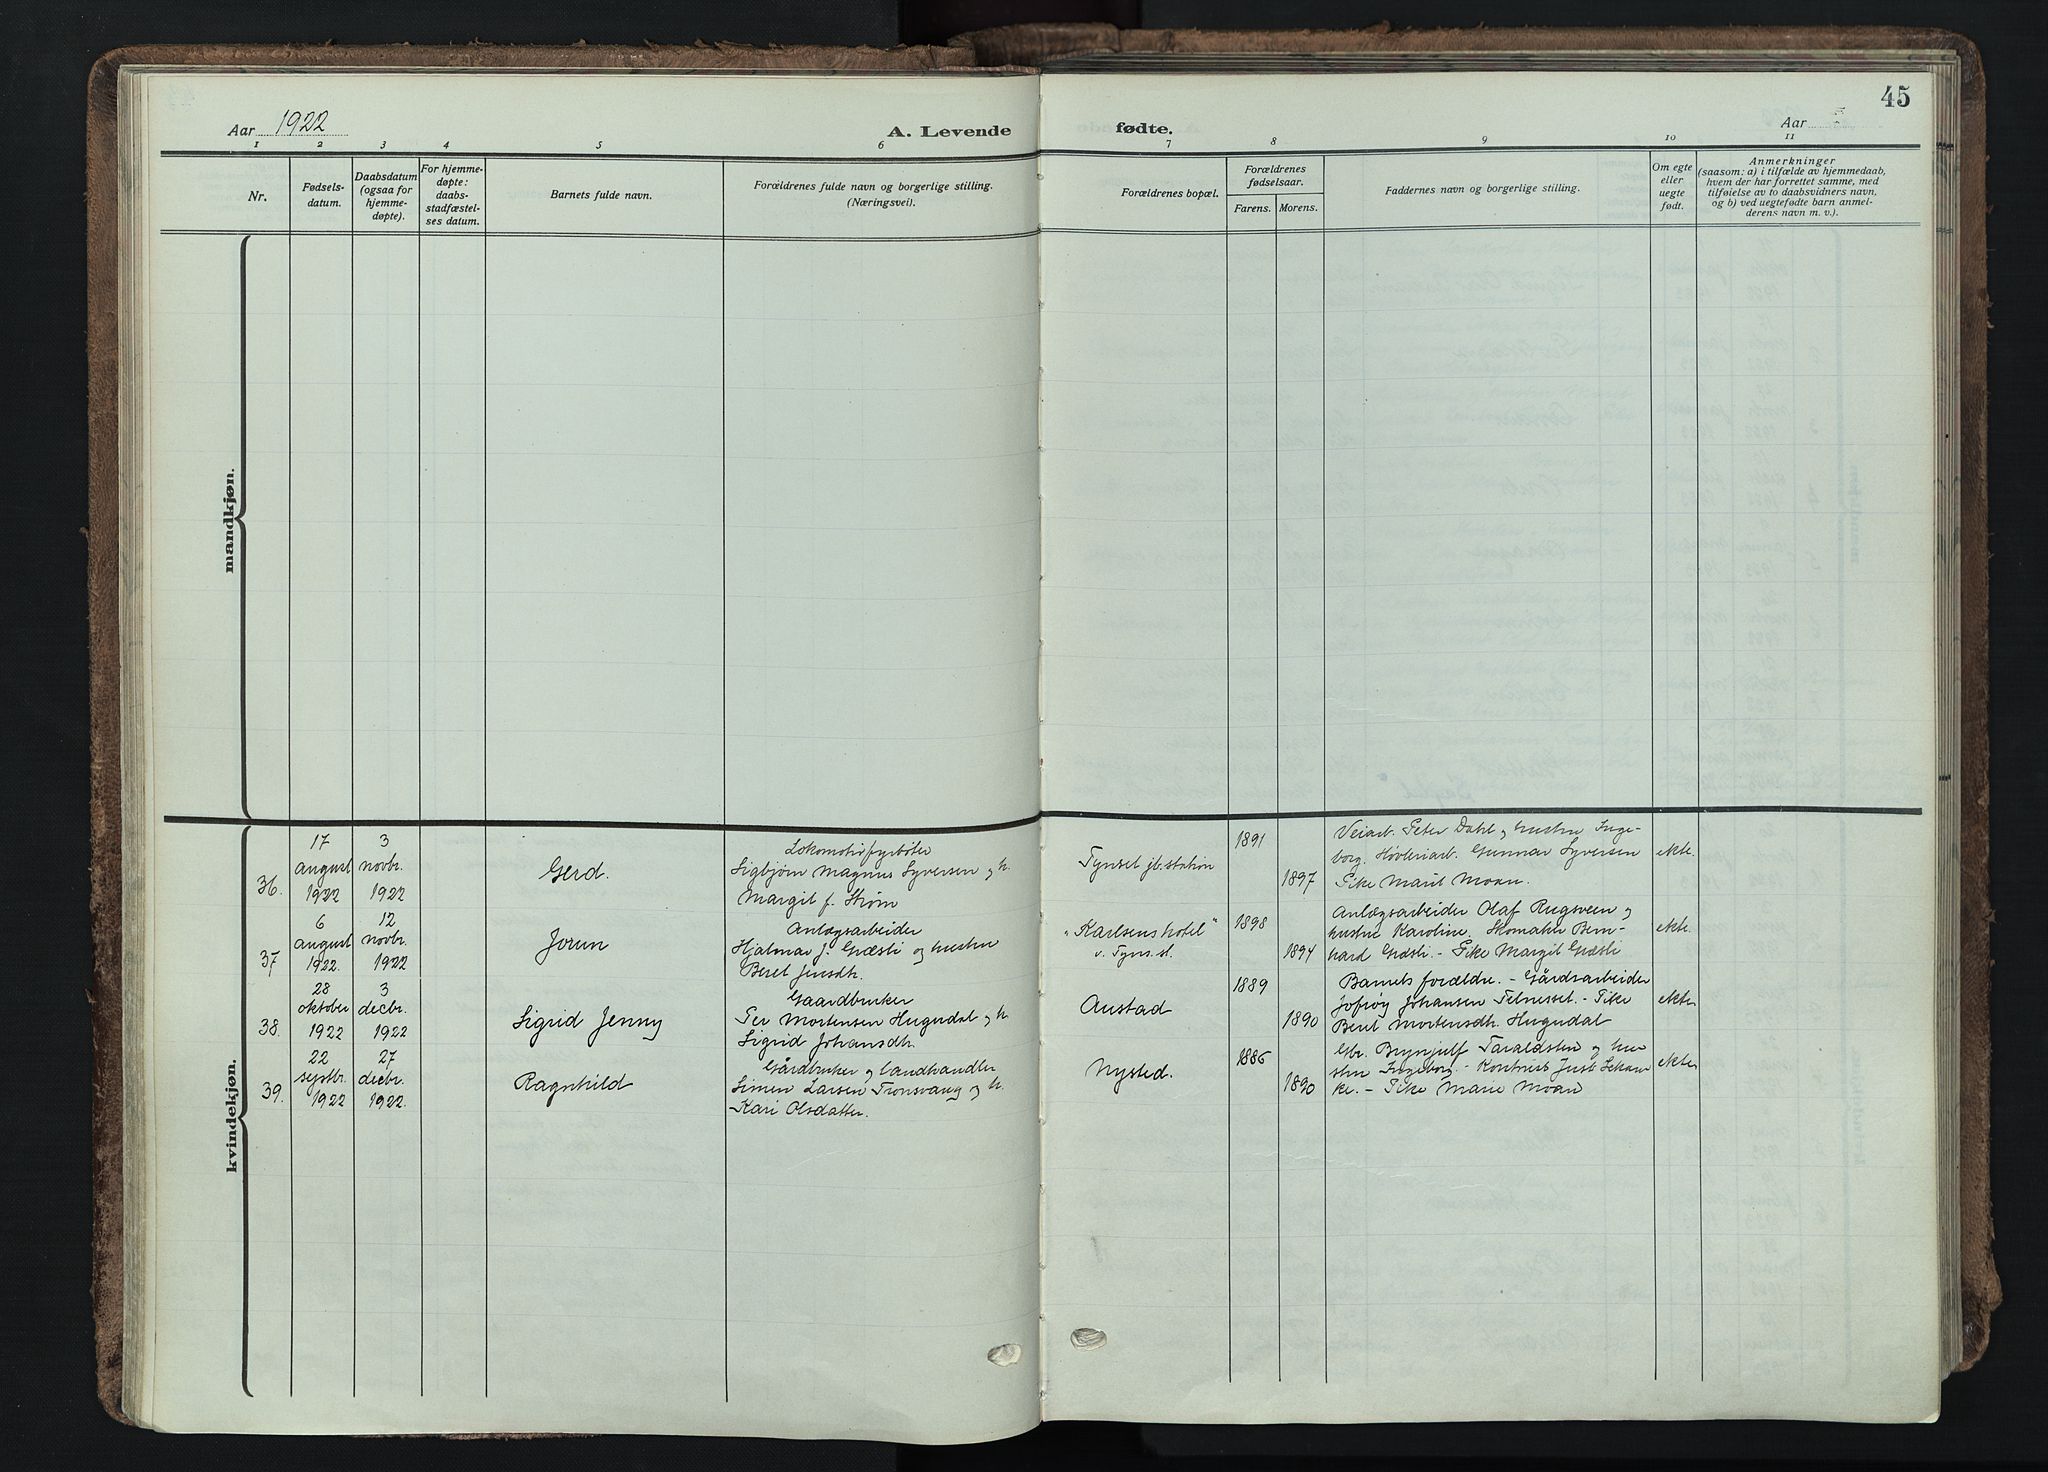 45
Aar 1922
A. Levende
fødte.
Aar
1 2 3 4 5 6 7 8 9 10 11
Nr.
Fødsels-
datum.
Daabsdatum
(ogsaa for
hjemme-
døpte).
For hjemme-
døpte:
daabs-
stadfæstel-
ses datum.
Barnets fulde navn.
Forældrenes fulde navn og borgerlige stilling.
(Næringsvei).
Forældrenes bopæl.
Forældrenes
fødselsaar.
Farens. Morens.
Faddernes navn og borgerlige stilling.
Om egte
eller
uegte
født.
Anmerkninger
(saasom: a) i tilfælde av hjemmedaab,
hvem der har forrettet samme, med
tilføielse av to daabsvidners navn,
og b) ved uegtefødte barn anmel-
derens navn m. v.).
mandkjøn.
kvindekjøn.
36.
17
august
1922
3
novbr.
1922
Gerd.
Lokomotivfyrbøter
Sigbjørn Magnus Syversen og h.
Margit f. Strøm
Tynset jb. station
1891
1897
Veiarb. Peter Dahl og hustru Inge-
borg. Høvleriarb. Gunnar Syversen
Pike Marit Moan.
ekte.
37
6
august
1922.
12
novbr.
1922
Jorun
Anlægsarbeider
Hjalmar J. Græsli og hustru
Beret Jensdtr.
"Karlsens hotel"
v. Tyns. st.
1898
1894
Anlægsarbeider Olaf Rugsveen og
hustru Karoline. Skomaker Bern-
hard Græsli. - Pike Margit Græsli
ekte.
38.
28
oktober
1922
3
decbr.
1922
Sigrid Jenny
Gaardbruker
Per Mortensen Hugudal og h.
Sigrid Johansdtr.
Austad
1889
1890
Barnets foreldre. - Gårdsarbeider
Jofrøy Johansen Telnesset. - Pike
Beret Mortensdtr. Hugudal
ekte
39.
22
septbr.
1922
27
decbr.
1922.
Ragnhild
Gårdbruker og landhandler
Simen Larsen Tronsvang og h.
Kari Olsdatter.
Nysted.
1886
1890
Gbr. Brynjulf Taraldsten og hu-
stru Ingeborg. - Kontorist Just
ke. - Pike Marie Moan
ekte